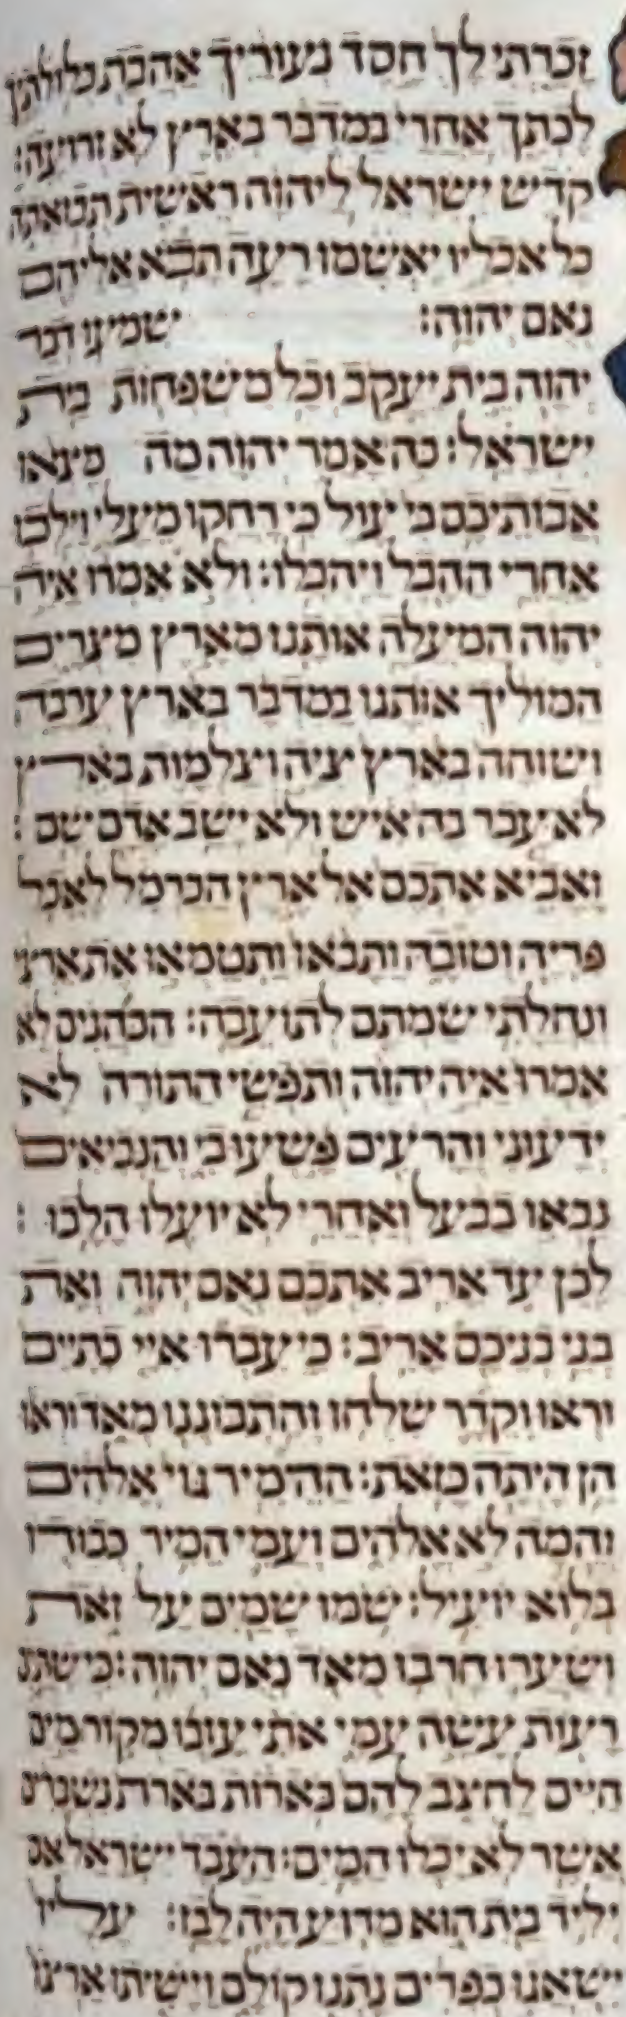 זכרתי לך חסד נעוריך אהבת כלולתיך
לכתך אחרי במדבר בארץ לא זרועה:
קדש ישראל ליהוה ראשית תבואתו
כל אכליו יאשמו רעה תבא אליהם
נאם יהוה: שמעו דבר
יהוה בית יעקב וכל משפחות בית
ישראל: כה אמר יהוה מה מצאו
אבותיכם בי עול כי רחקו מעלי וילכו
אחרי ההבל ויהבלו: ולא אמרו איה
יהוה המעלה אותנו מארץ מצרים
המוליך אותנו במדבר בארץ ערבה
ושוחה בארץ ציה וצלמות בארץ
לא עבר בה איש ולא ישב אדם שם:
ואביא אתכם אל ארץ הכרמל לאכל
פריה וטובה ותבאו ותטמאו את ארצי
ונחלתי שמתם לתועבה: הכהנים לא
אמרו איה יהוה ותפשי התורה לא
ידעוני והרעים פשעו בי והנביאים
נבאו בבעל ואחרי לא יועלו הלכו:
לכן עד אריב אתכם נאם יהוה ואת
בני בניכם אריב: כי עברו איי כתיים
וראו וקדר שלחו והתבוננו מאד וראו
הן היתה כזאת: ההמיר גוי אלהים
והמה לא אלהים ועמי המיר כבודו
בלוא יועיל: שמו שמים על זאת
ושערו חרבו מאד נאם יהוה: כי שתים
רעות עשה עמי אתי עזבו מקור מים
חיים לחצב להם בארות בארת נשברים
אשר לא יכלו המים: העבד ישראל אם
יליד בית הוא מדוע היה לבז: עליו
ישאגו כפרים נתנו קולם וישיתו ארצו